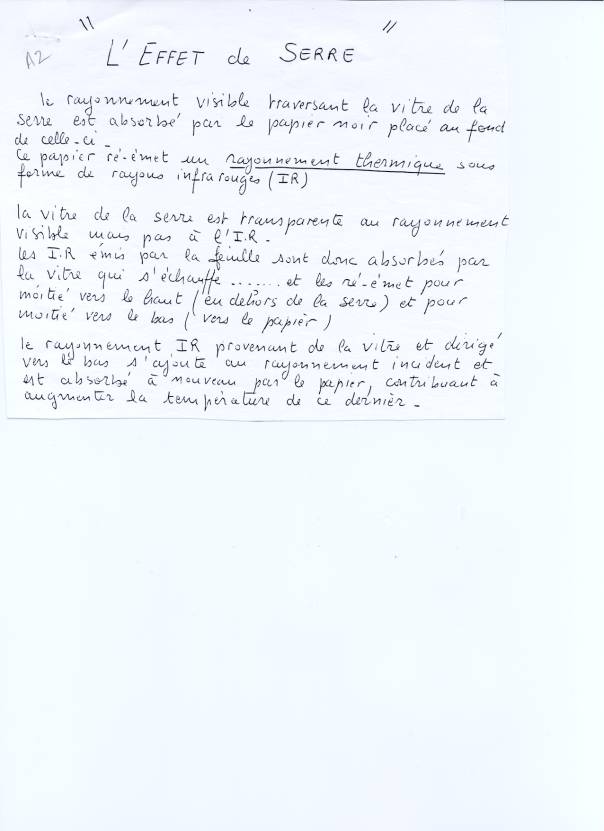 " "
A2 L'EFFET de SERRE
le rayonnement visible traversant la vitre de la
serre est absorbé par le papier noir placé au fond
de celle-ci.
Ce papier ré-émet un rayonnement thermique sous
forme de rayons infrarouges (IR)
la vitre de la serre est transparente au rayonnement
visible mais pas à l'I.R.
les I.R émis par la feuille sont donc absorbés par
la vitre qui s'échauffe ........ et les ré-émet pour
moitié vers le haut (en dehors de la serre) et pour
moitié vers le bas (vers le papier)
le rayonnement IR provenant de la vitre et dirigé
vers le bas s'ajoute au rayonnement incident et
est absorbé à nouveau par le papier, contribuant à
augmenter la température de ce dernier.